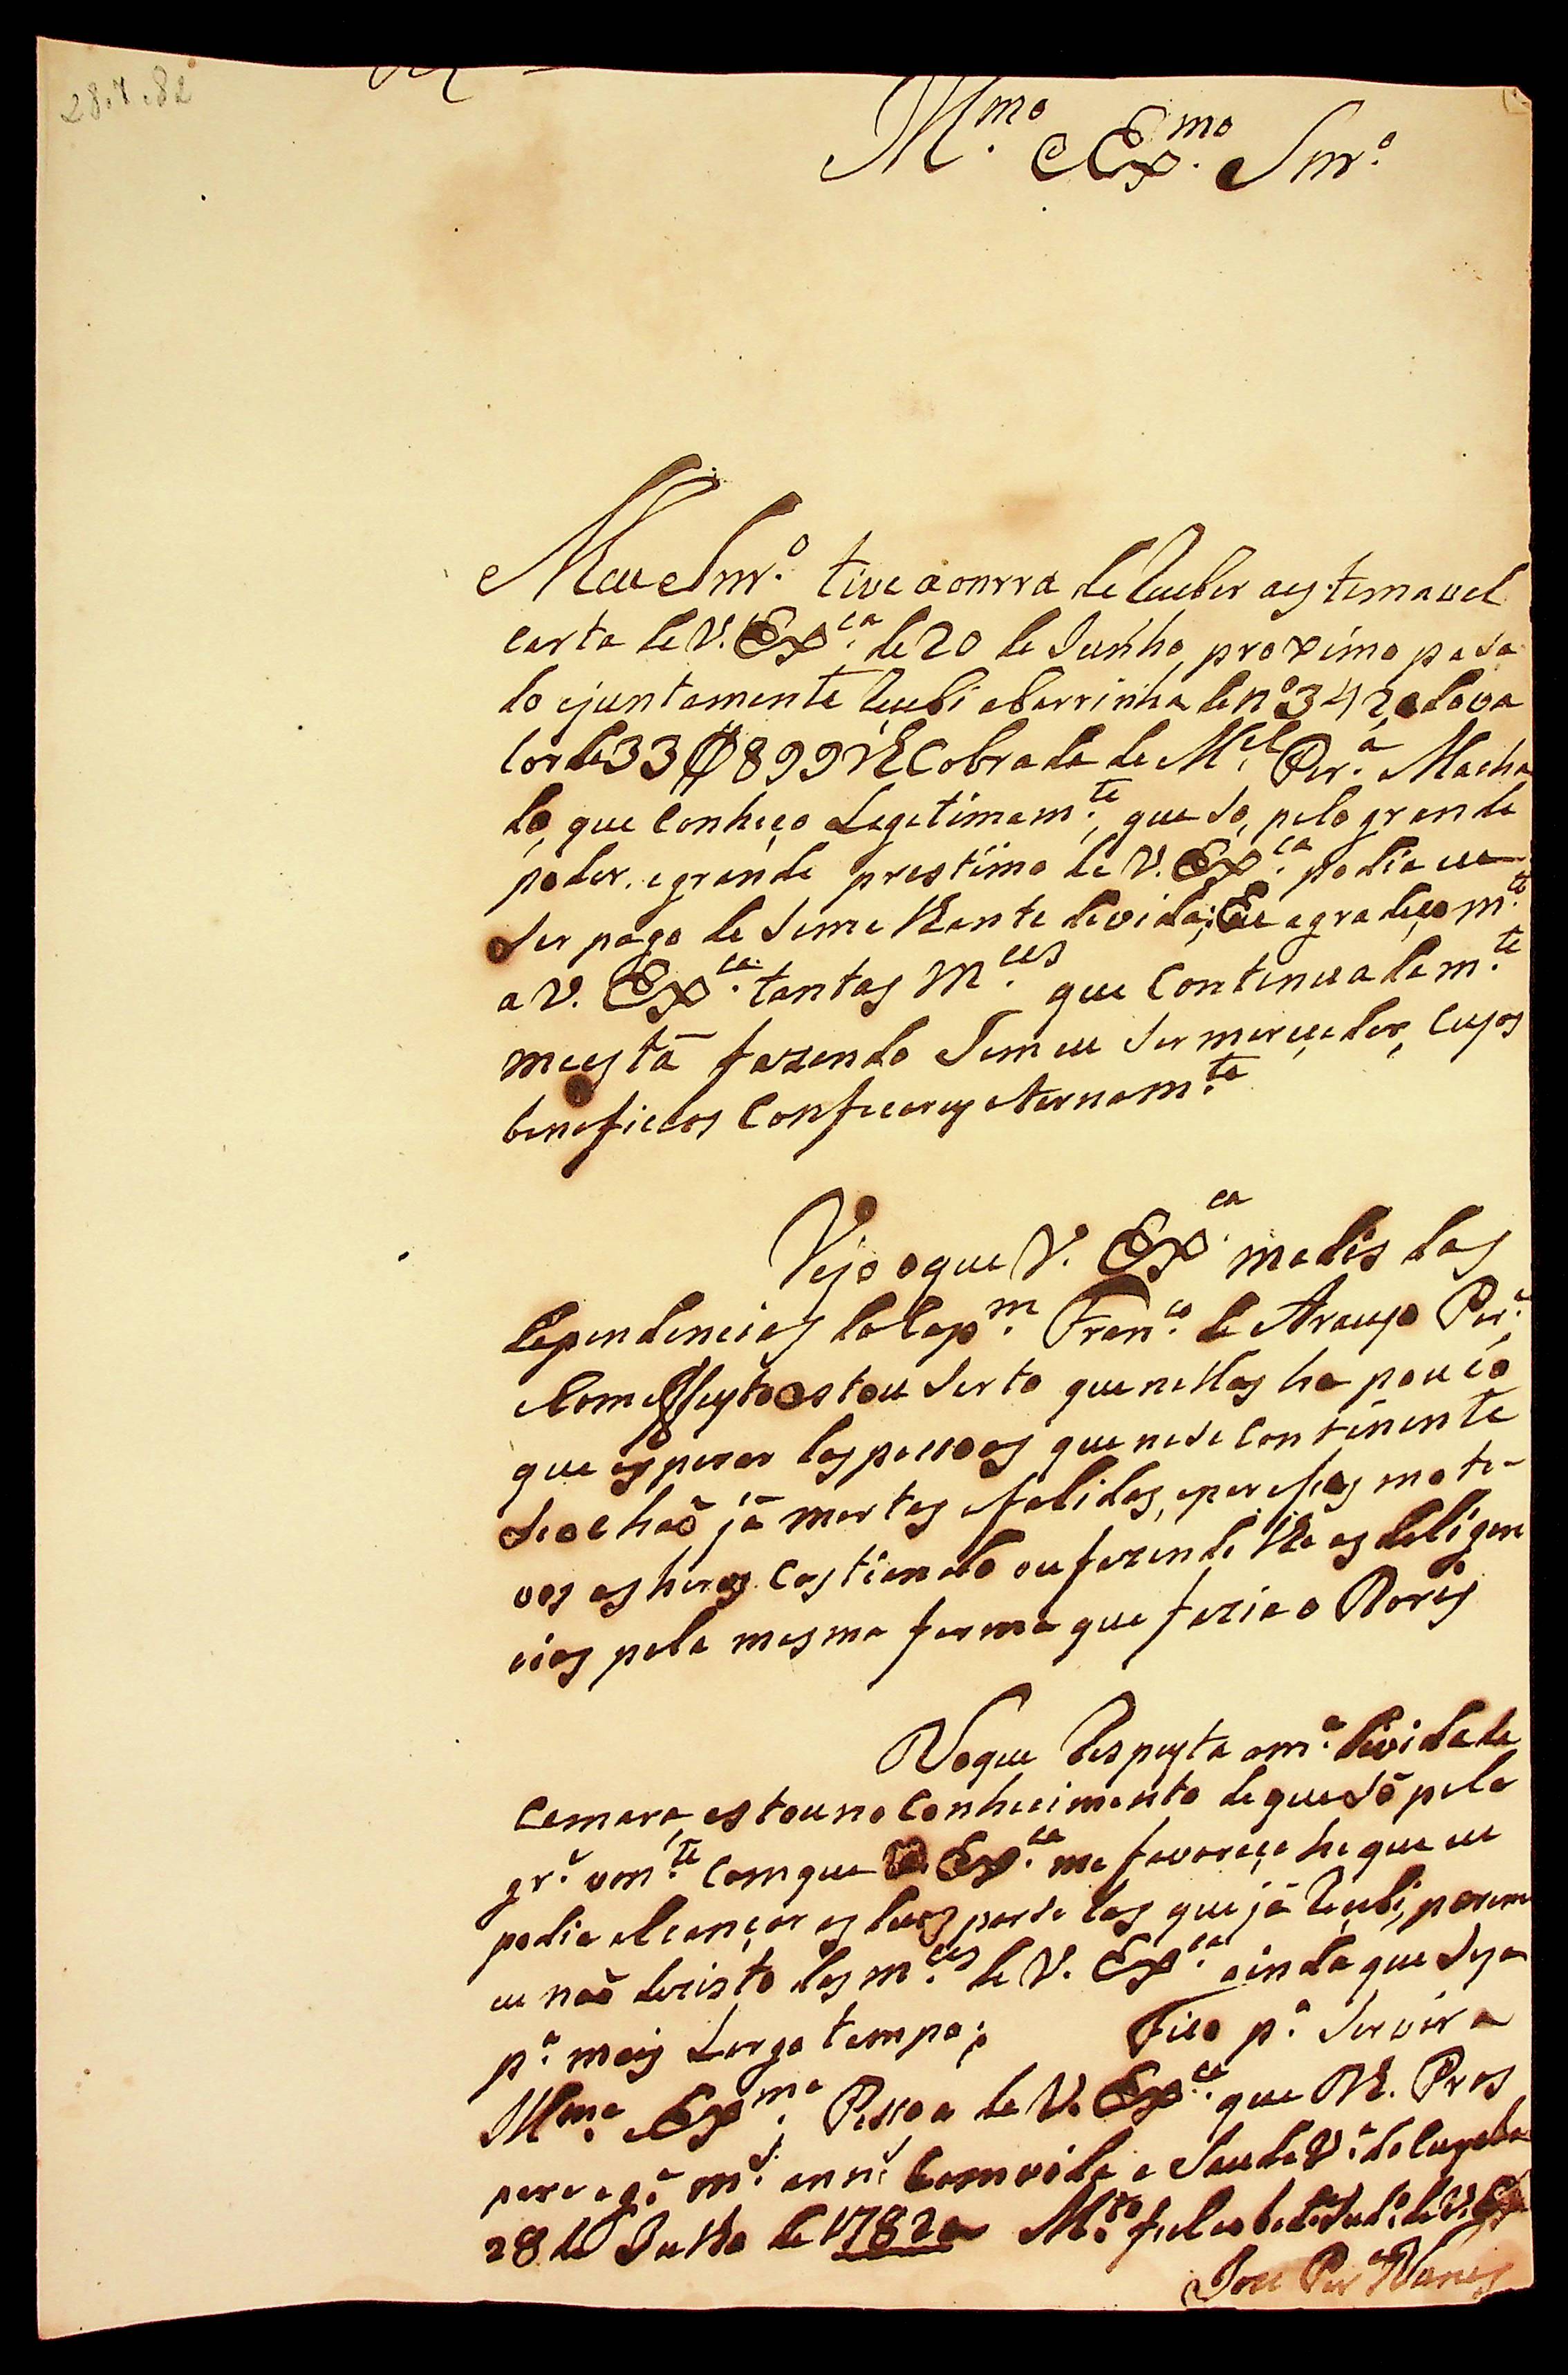 28.7.82
Illmo. e Exmo. Snr.o
Meu Snr.o tive a onrra de Reçeber a estemavel
carta de V. Exca. de 20 de Junho proximo pasa
do ejuntamente Reçebi a barrinha de no. 342, e do va
lor de 33$899 rs Cobrada de Mel. Per.a Macha
do, que Conheço Legetimamte. que só, pelo grande
poder, e grande prestimo de V. Exca. podia eu
ser pago de Semelhante devida; Eu agradeço mto.
a V. Exca. tantas Mces. que Continuadamte.
me está fazendo Sem eu Ser mereçedor, Cujos
benefiçios Confeçarey eternamte.
Vejo o que V. Exca. me dis das
dependencias do Capm. Franco. de Araujo Per.a
e Com effeyto estou Serto que nellas ha pouco
que esperar das pessoas que nese Continente
se achaõ já mortas e falidas, e por esses moti-
vos as hira Costiando ou fazendolhe as deligen
cias pela mesma forma que fazia o Roris
No que Respeyta a m.a devida da
Camara, estou no Conhecimento de que só pela
gr.e vonte. Com que V. Exca. me favoreçe he que eu
podia alcançar as duas parsedas que já Reçebi, porem
eu naõ dezisto das mces. de V. Exca. ainda que Seja
p.a mais Largo tempo; Fico p.a Servir a
Illma. e Exma. Pessoa de V. Exca. que Ds. Pros
pere e g.e ms. ans. Com vida e Saude V.a do Cuyaba
28 de Julho de 1782 a Mto. fiel e obte. Sud.o de V. Ex
Joze Per.a Nunes